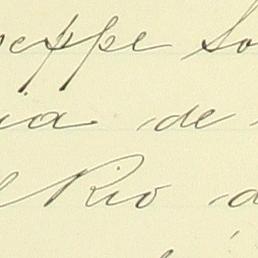 seppe So
ia de
Rio d